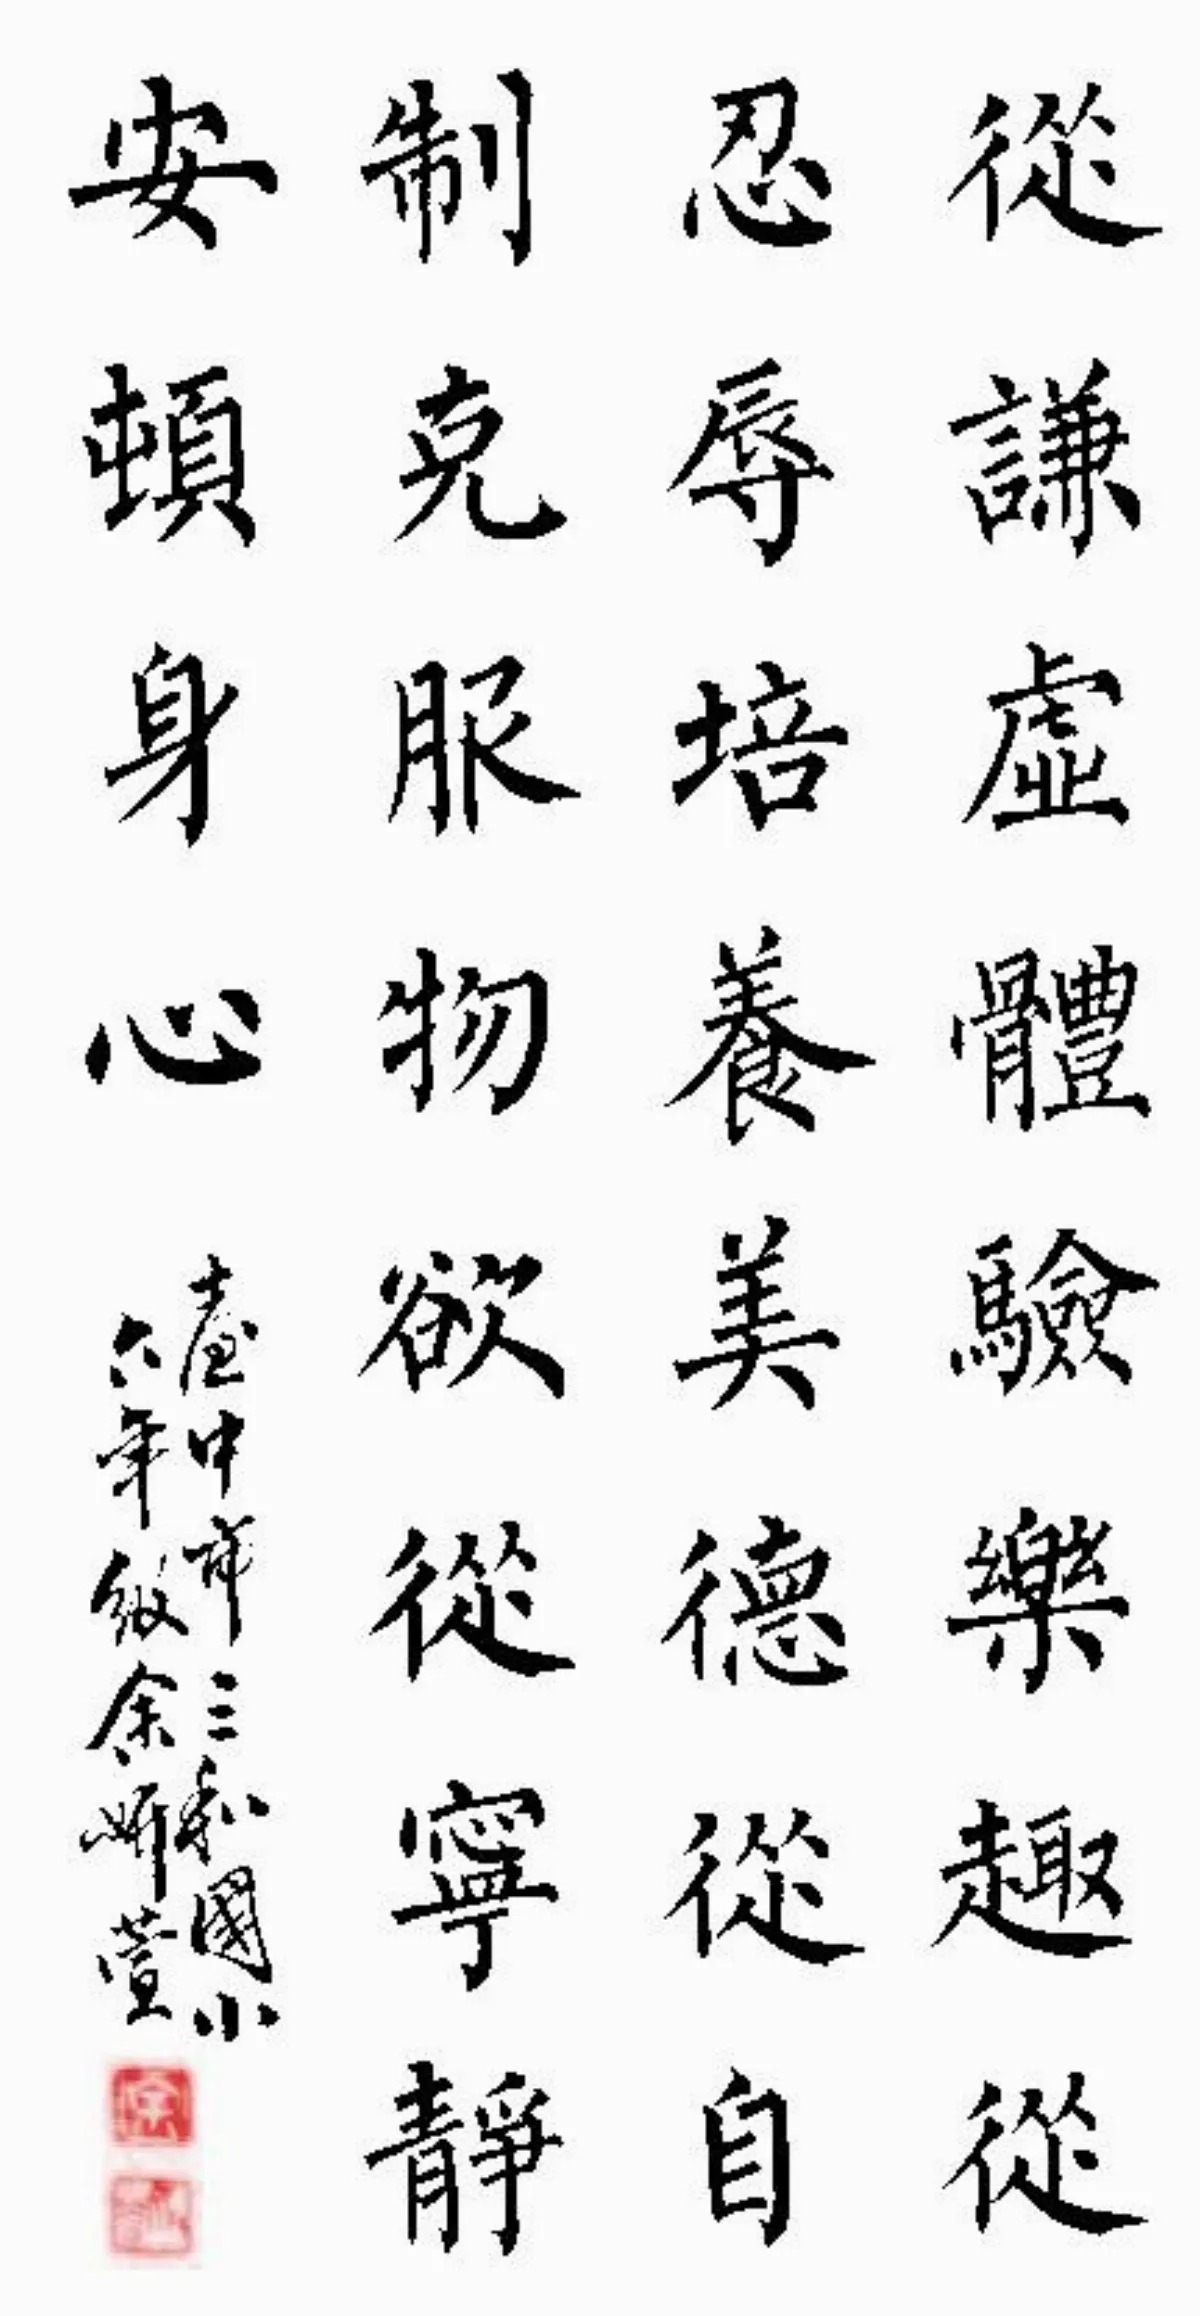 從謙虛體驗樂趣從
忍辱培養美德從自
制克服物欲從寧靜
安頓身心
臺中市三和國小
六年級余昕萱